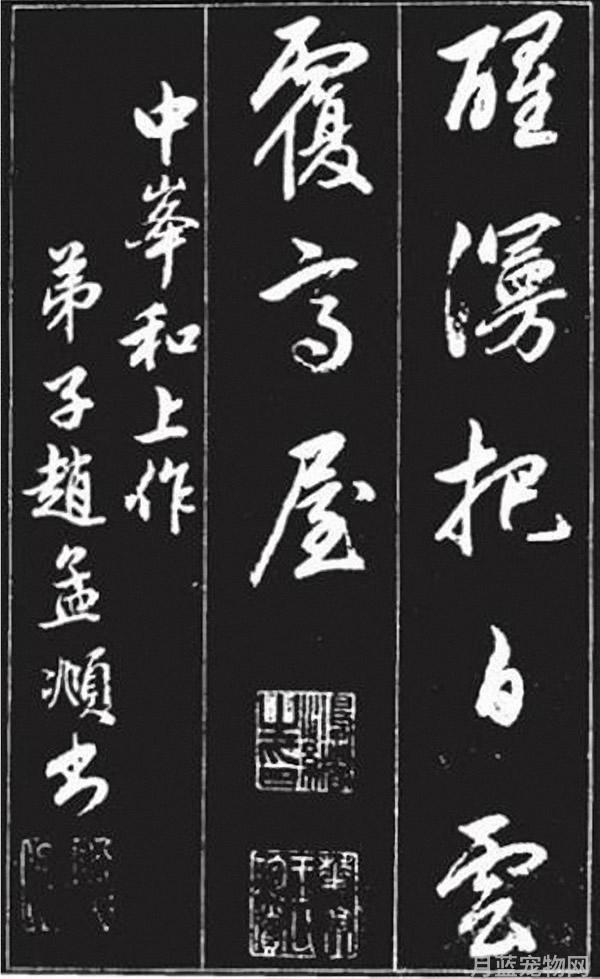 醒漫把白雲
覆高屋
中峯和上作
弟子趙孟頫书
月蓝宠物网